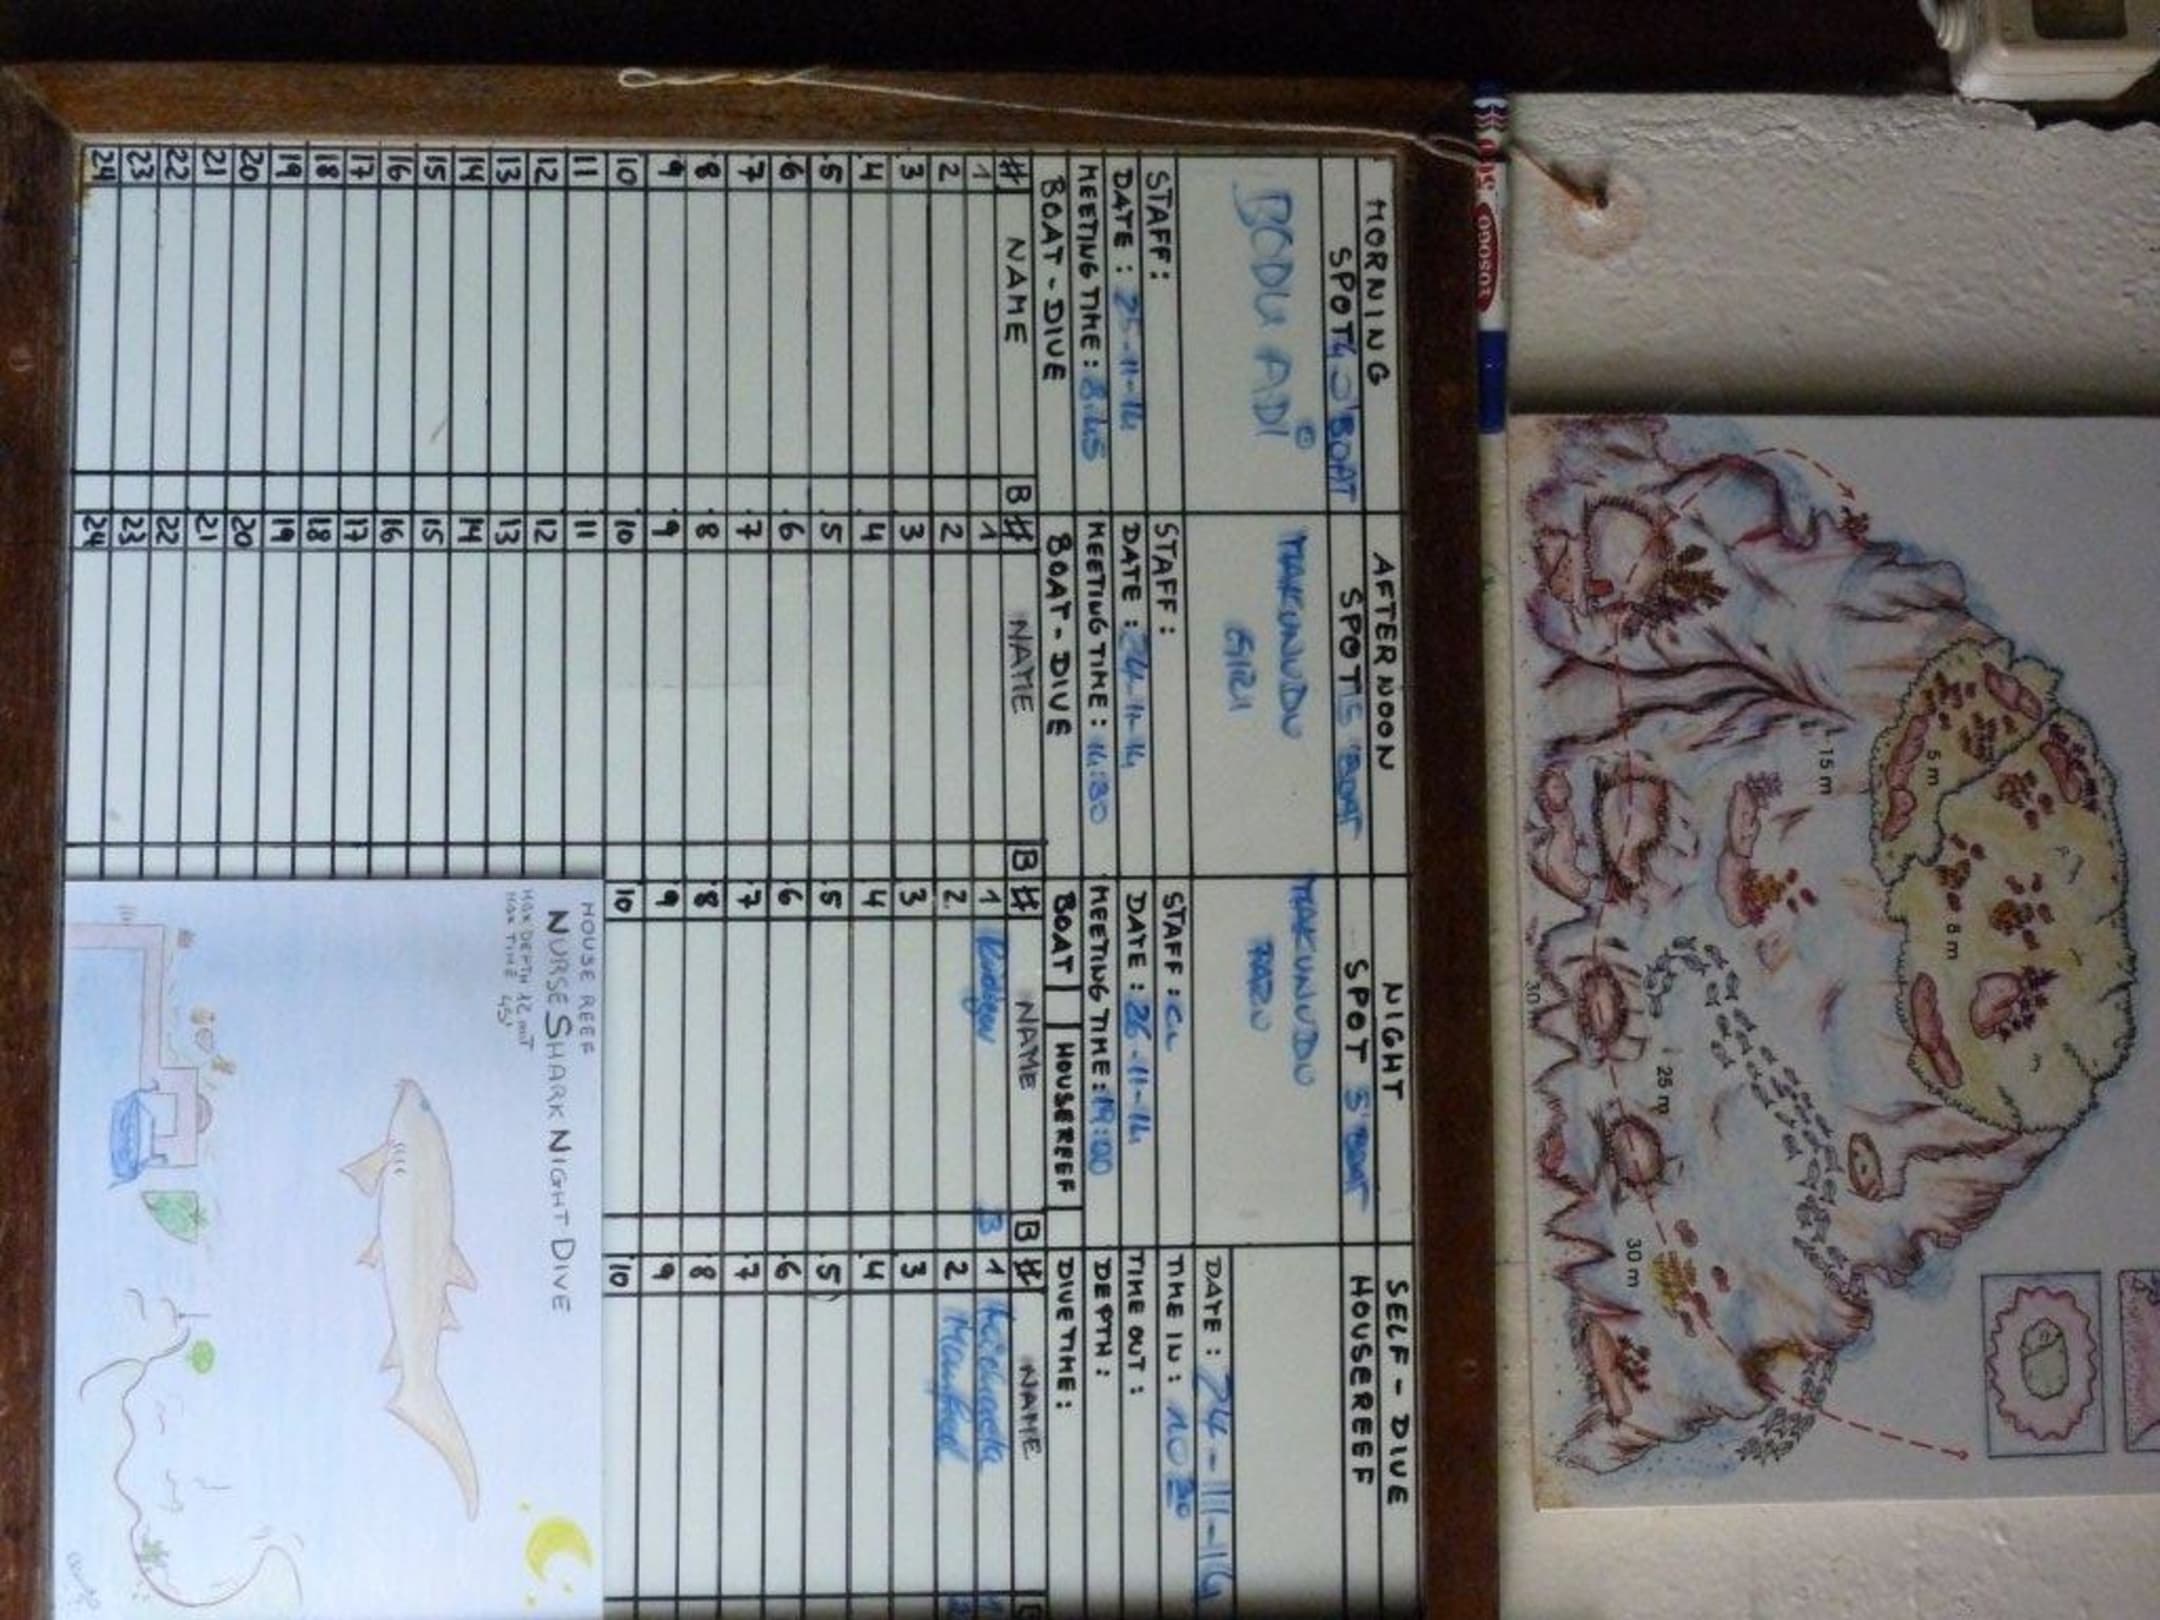 MORNING
SPOT
BOAT
BODU ADI
STAFF:
DATE: 25-11-14
MEETING TIME: 8:45
BOAT-DIVE
# NAME B
1
2
3
4
5
6
7
8
9
10
11
12
13
14
15
16
17
18
19
20
21
22
23
24
AFTERNOON
SPOT
BOAT
MAKUNUDU
GIRI
STAFF:
DATE: 24-11-14
MEETING TIME: 14:30
BOAT-DIVE
# NAME B
1
2
3
4
5
6
7
8
9
10
11
12
13
14
15
16
17
18
19
20
21
22
23
24
NIGHT
SPOT 5' BOAT
MAKUNUDU
FARU
STAFF:
DATE: 26-11-14
MEETING TIME: 19:00
BOAT HOUSEREEF
# NAME B
1 Rüdiger B
2
3
4
5
6
7
8
9
10
SELF-DIVE
HOUSEREEF
DATE: 24-11-14
TIME IN:
TIME OUT:
DEPTH:
DIVETIME:
# NAME
1
2 Manfred
3
4
5
6
7
8
9
10
HOUSE REEF
NURSE SHARK NIGHT DIVE
MAX DEPTH 12 mt
MAX TIME 45'
5 m
15 m
8 m
25 m
30 m
30